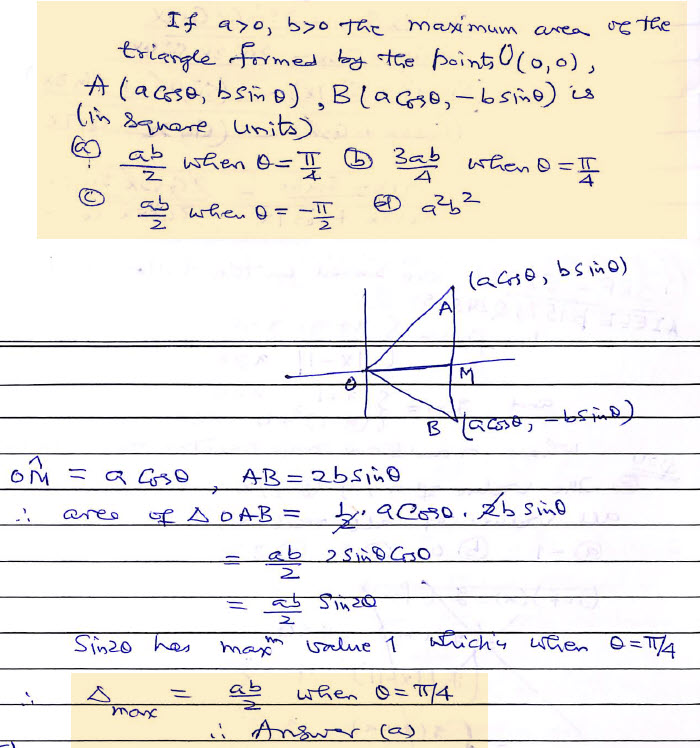 If a>0, b>0 the maximum area of the
triangle formed by the points O(0,0),
A(a cosθ, b sinθ), B(a cosθ, -b sinθ) is
(in square units)
(a) ab/2 when θ = π/4 (b) 3ab/4 when θ = π/4
(c) ab/2 when θ = -π/2 (d) a²b²
(a cosθ, b sinθ)
A
O M
B (a cosθ, -b sinθ)
OM = a cosθ, AB = 2b sinθ
∴ area of Δ OAB = 1/2 · a cosθ · 2b sinθ
= ab/2 2 sinθ cosθ
= ab/2 sin2θ
Sin2θ has max^m value 1 which is when θ = π/4
∴ Δmax = ab/2 when θ = π/4
∴ Answer (a)